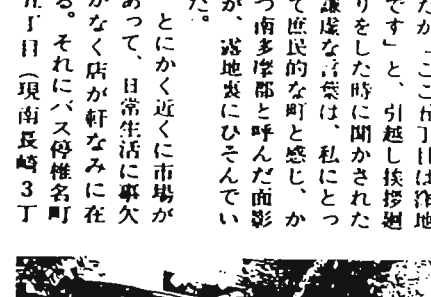 たが「ここ五丁目は窪地
です」と、引越し挨拶廻
りをした時に聞かされた
謙虚な言葉は、私にとっ
て庶民的な町と感じ、か
つ南多摩郡と呼んだ面影
が、露地裏にひそんでい
た。
とにかく近くに市場が
あって、日常生活に事欠
かなく店が軒なみに在
る。それにバス停椎名町
五丁目（現南長崎3丁